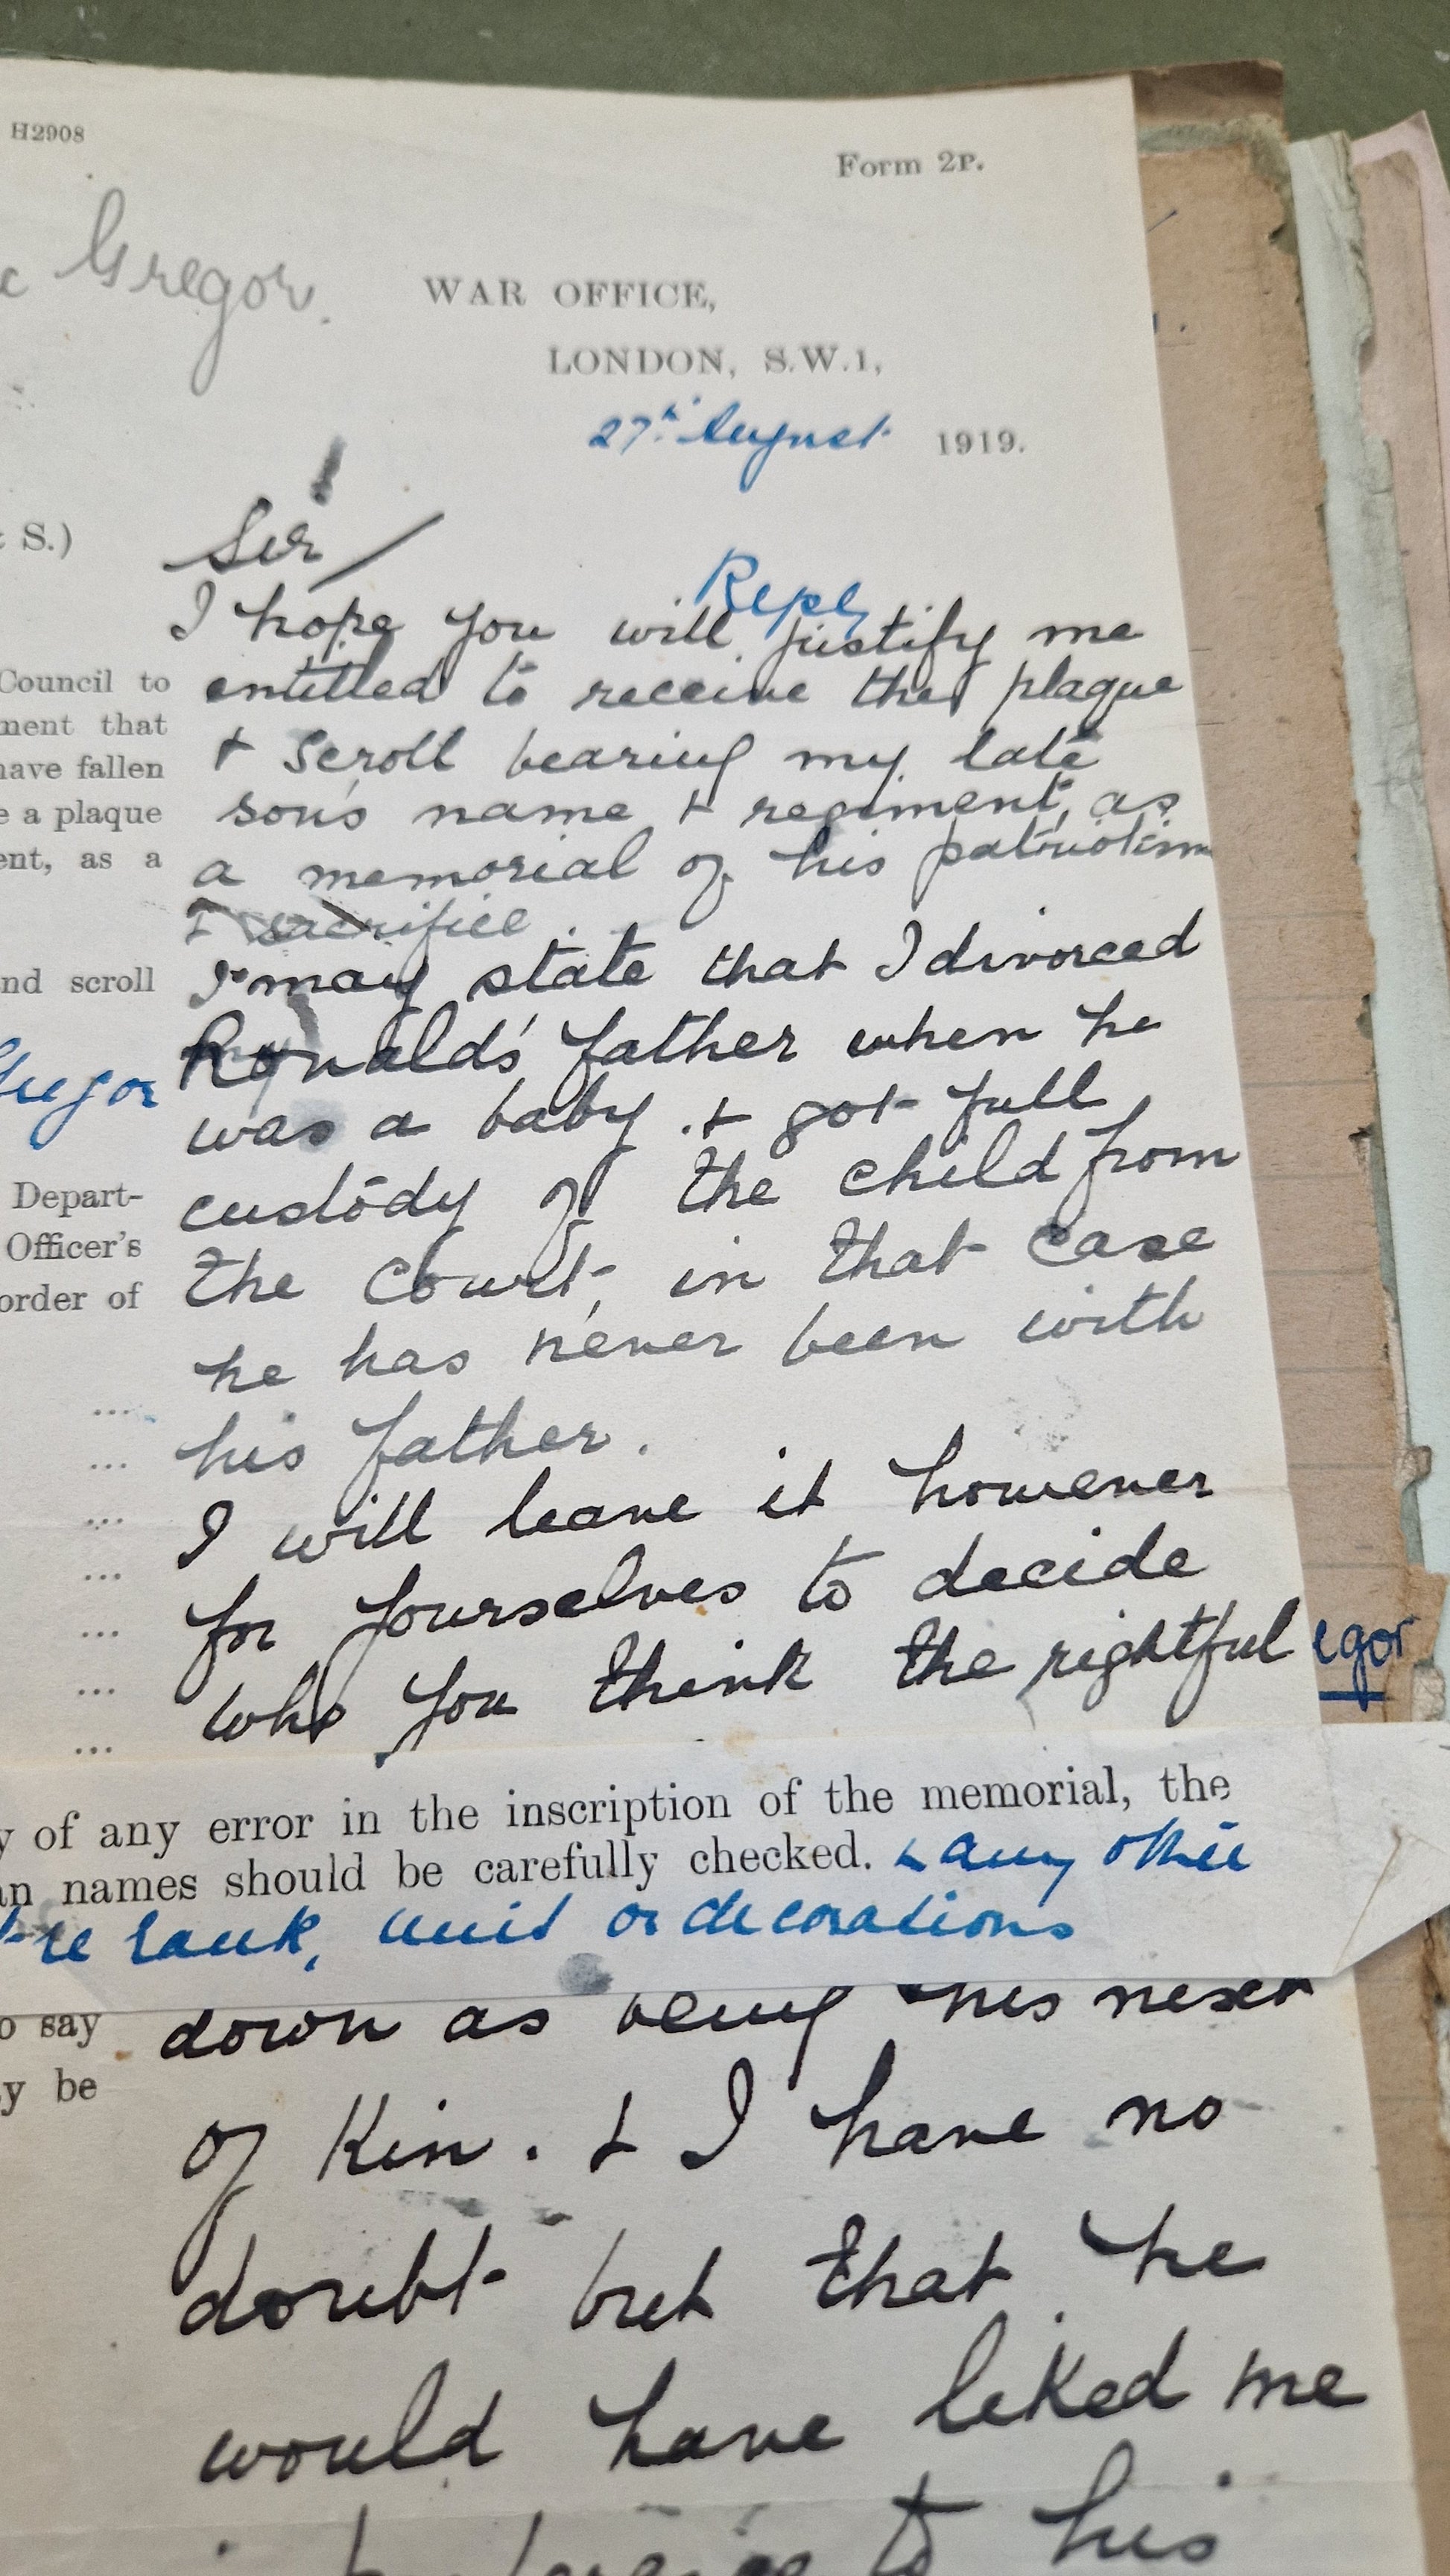 H2908
Form 2P.
Gregor.
WAR OFFICE,
LONDON, S.W.1,
27th August 1919.
S.)
Sir
Reply
I hope you will justify me
Council to
entitled to receive the plaque
ment that
& scroll bearing my late
have fallen
son's name & regiment, as
e a plaque
a memorial of his patriotism
ent, as a
& sacrifice.
I may state that I divorced
nd scroll
Ronald's father when he
Gregor
was a baby. & got full
custody of the child from
Depart-
Officer's
the Court, in that case
order of
he has never been with
his father.
I will leave it however
for yourselves to decide
who you think the rightful
egor
y of any error in the inscription of the memorial, the
an names should be carefully checked. & any other
rank, unit or decorations
down as being his next
o say
y be
of Kin. & I have no
doubt but that he
would have liked me
to his